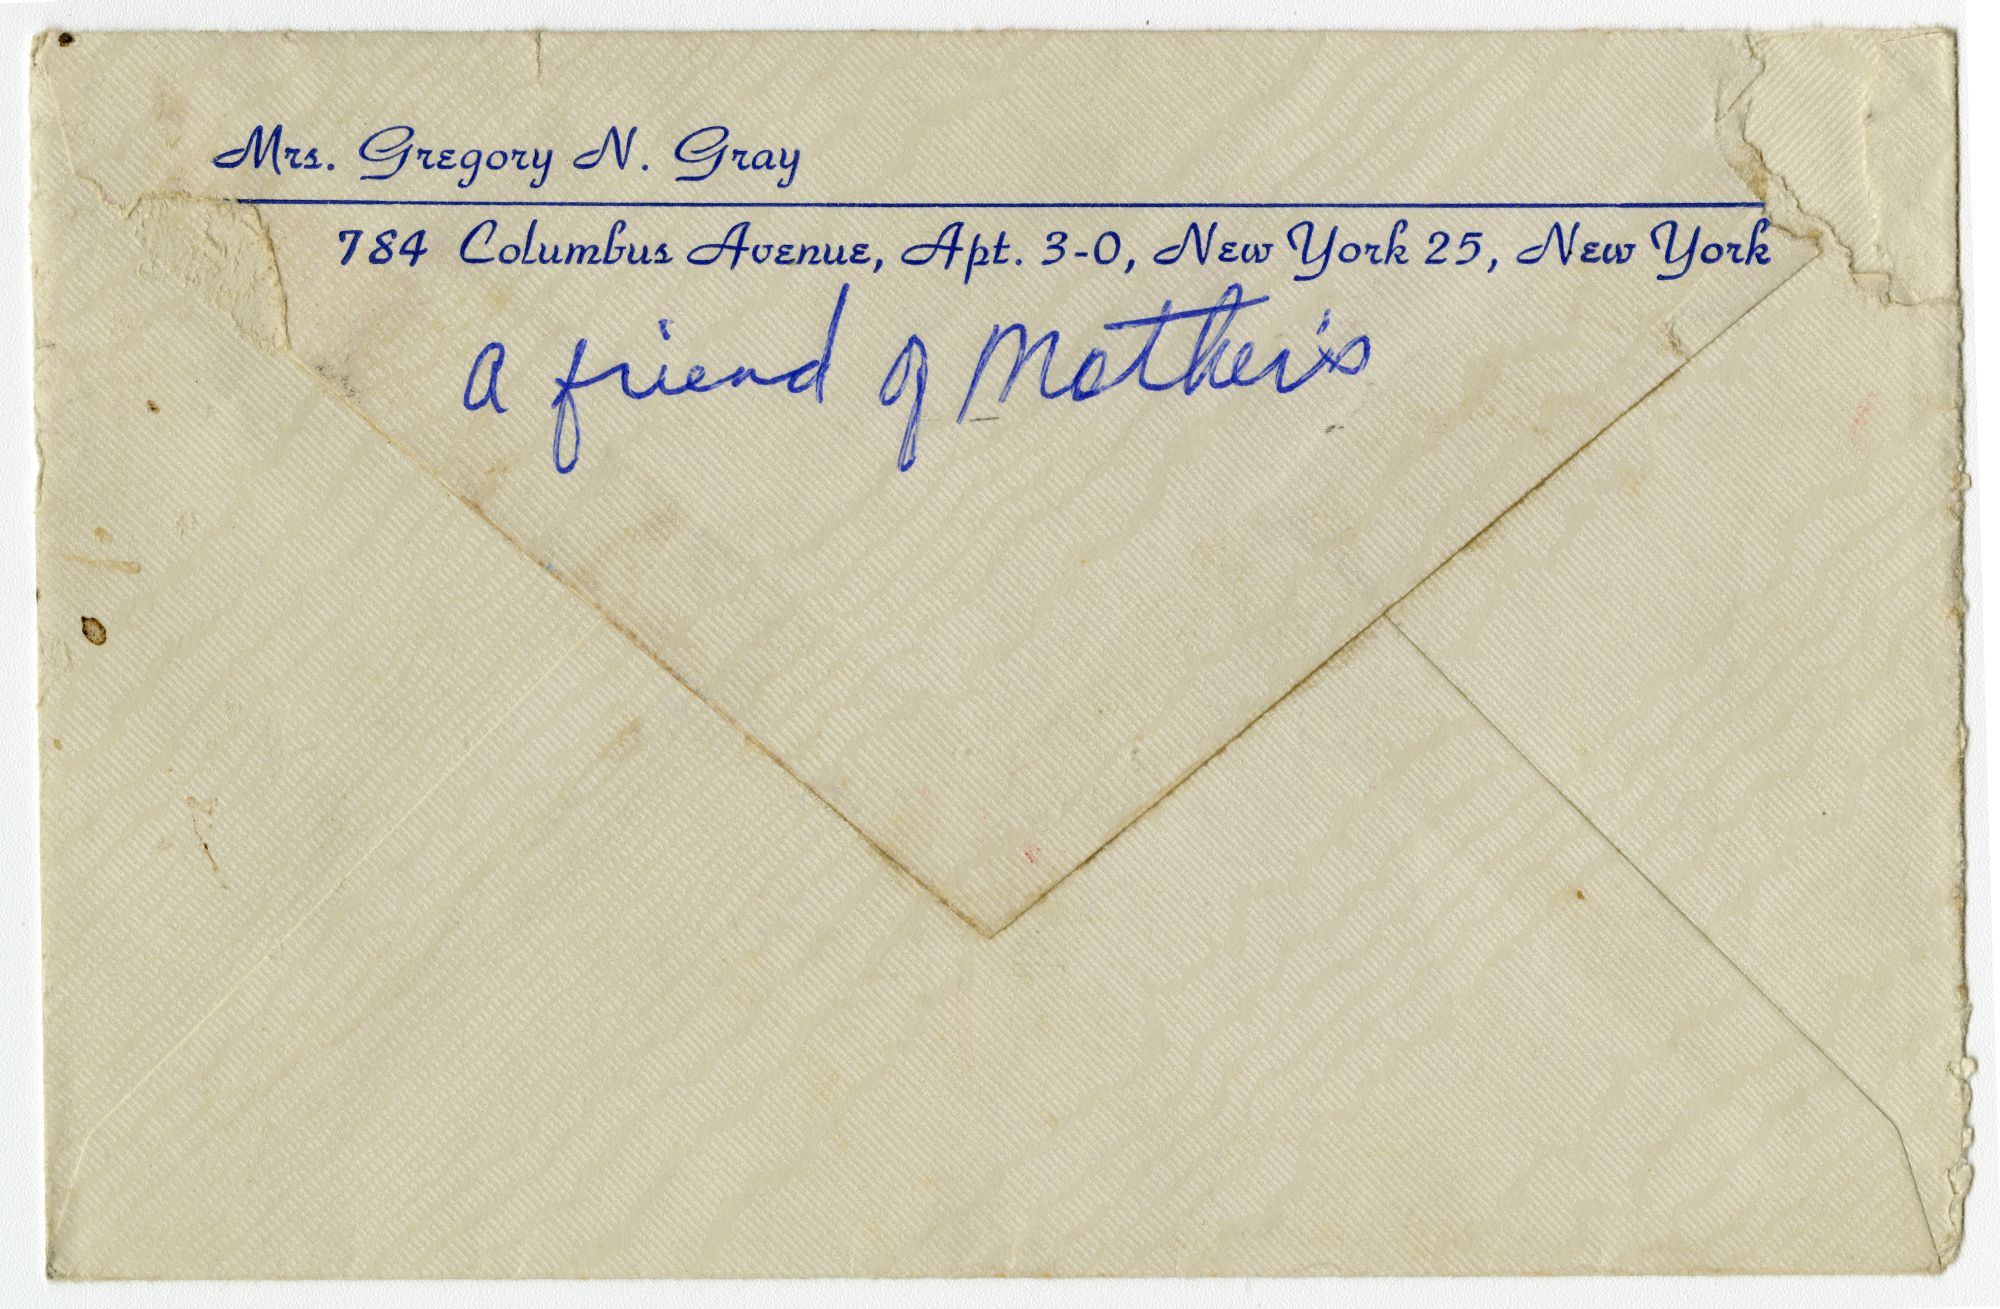 Mrs. Gregory N. Gray
784 Columbus Avenue, Apt. 3-O, New York 25, New York
a friend of Mother's